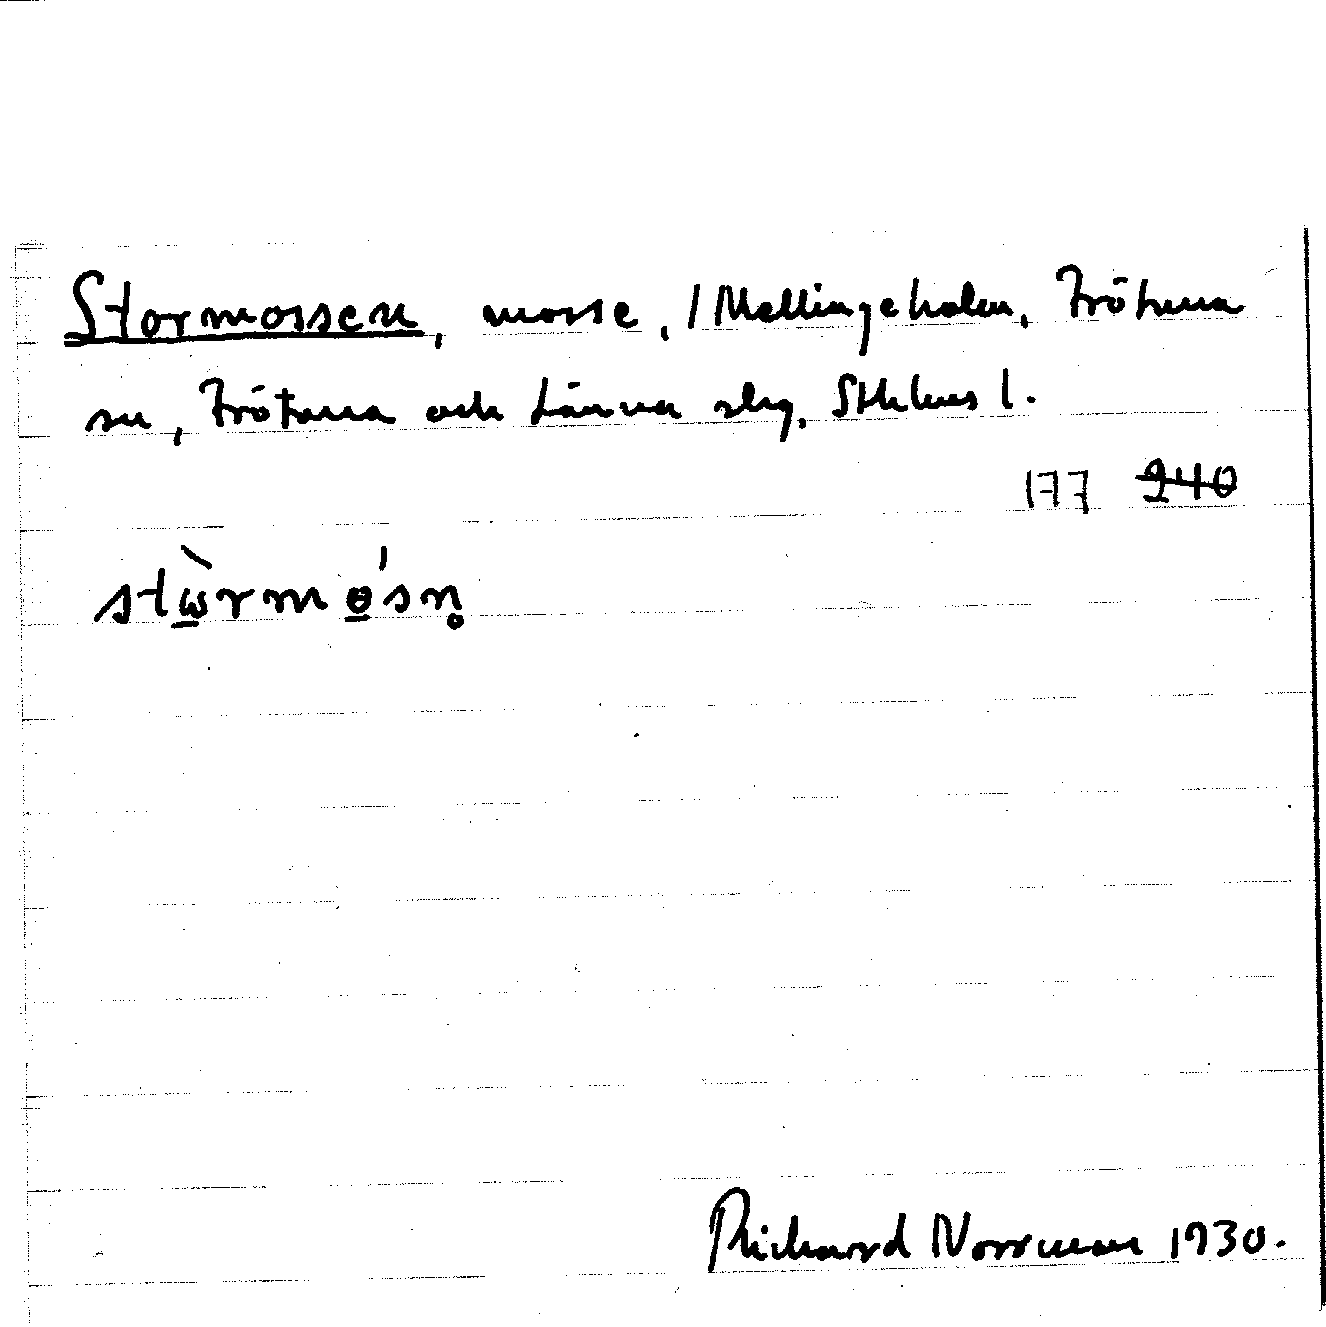 Stormossen, mosse, /Mellingeholm, Frötuna
sn, Frötuna och Länna slg, Sthlms l.
177 240
stὼrmǿsn̥
Richard Norrman 1930.